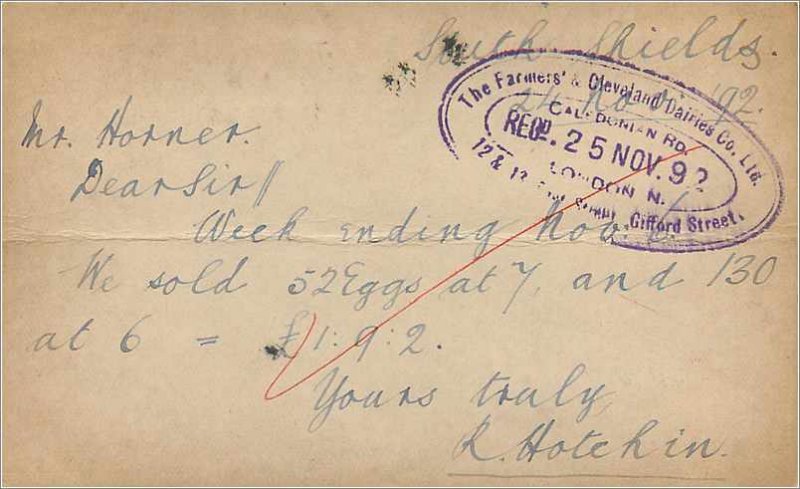 South Shields.
24 Nov. '92.
The Farmers' & Cleveland Dairies Co. Ltd.
CALEDONIAN RD.
RECD. 25 NOV. 92
LONDON N.
12 & Gifford Street.
Mr. Horner.
Dear Sir //
Week ending Nov.
We sold 52 Eggs at 7, and 130
at 6 = £1:9:2.
Yours truly,
R. Hotchin.